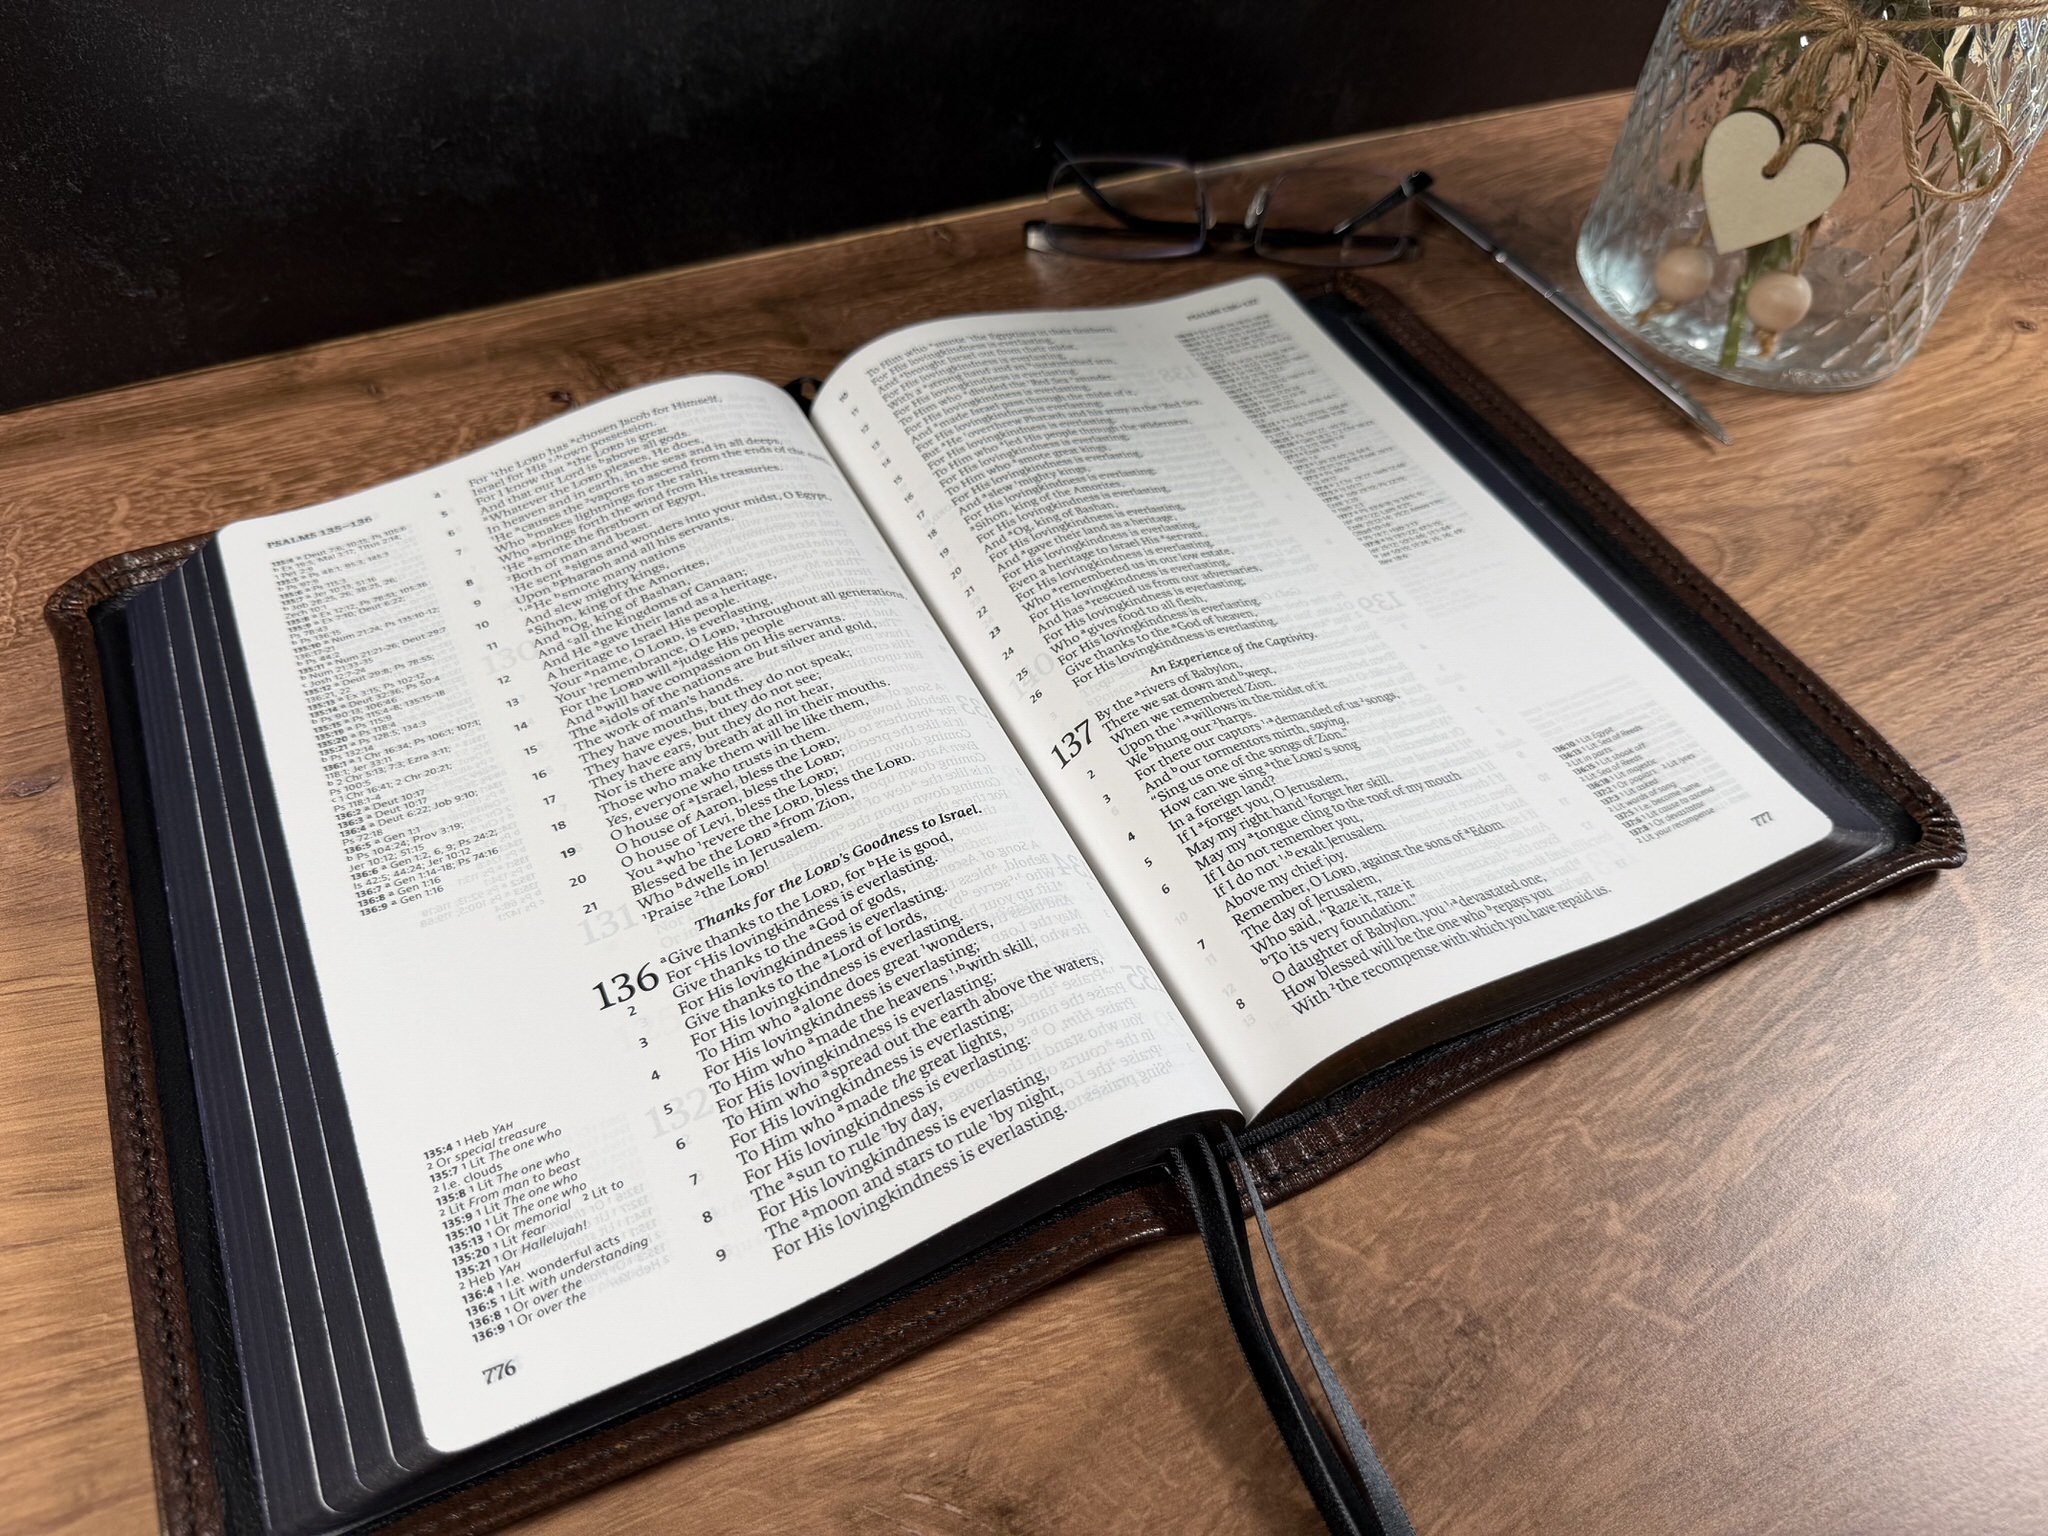 PSALMS 135–136
135:4 a Deut 7:6; 10:15; Ps 105:6
b Ex 19:5; Mal 3:17; Titus 2:14;
1 Pet 2:9
135:5 a Ps 48:1; 95:3; 145:3
b Ps 97:9
135:6 a Ps 115:3
135:7 a Jer 10:13; 51:16
b Job 28:25, 26; 38:25, 26;
Zech 10:1
135:8 a Ex 12:12; Ps 78:51; 105:36
135:9 a Ex 7:10; Deut 6:22;
Ps 78:43
b Ps 136:15
135:10 a Num 21:24; Ps 135:10-12;
136:17-21
b Ps 44:2
135:11 a Num 21:21-26; Deut 29:7
b Num 21:33-35
c Josh 12:7-24
135:12 a Deut 29:8; Ps 78:55;
136:21, 22
135:13 a Ex 3:15; Ps 102:12
135:14 a Deut 32:36; Ps 50:4
b Ps 90:13; 106:46
135:15 a Ps 115:4-8; 135:15-18
135:18 a Ps 115:8
135:19 a Ps 115:9
135:20 a Ps 118:4
135:21 a Ps 128:5; 134:3
b Ps 132:14
136:1 a 1 Chr 16:34; Ps 106:1; 107:1;
118:1; Jer 33:11
b 2 Chr 5:13; 7:3; Ezra 3:11;
Ps 100:5
c 1 Chr 16:41; 2 Chr 20:21;
Ps 118:1-4
136:2 a Deut 10:17
136:3 a Deut 10:17
136:4 a Deut 6:22; Job 9:10;
Ps 72:18
136:5 a Gen 1:1
b Ps 104:24; Prov 3:19;
Jer 10:12; 51:15
136:6 a Gen 1:2, 6, 9; Ps 24:2;
Is 42:5; 44:24; Jer 10:12
136:7 a Gen 1:14-18; Ps 74:16
136:8 a Gen 1:16
136:9 a Gen 1:16
4 For ¹the LORD has ᵃchosen Jacob for Himself,
Israel for His ²,ᵇown possession.
5 For I know that ᵃthe LORD is great
And that our Lord is ᵇabove all gods.
6 ᵃWhatever the LORD pleases, He does,
In heaven and in earth, in the seas and in all deeps.
7 ¹He ᵃcauses the ²vapors to ascend from the ends of the
Who ᵇmakes lightnings for the rain,
Who ᵃbrings forth the wind from His treasuries.
8 ¹He ᵃsmote the firstborn of Egypt,
²Both of man and beast.
9 ¹He sent ᵃsigns and wonders into your midst, O Egypt,
Upon ᵇPharaoh and all his servants.
10 ¹,ᵃHe ᵇsmote many nations
And slew mighty kings,
11 ᵃSihon, king of the Amorites,
And ᵇOg, king of Bashan,
And ᶜall the kingdoms of Canaan;
12 And He ᵃgave their land as a heritage,
A heritage to Israel His people.
13 Your ᵃname, O LORD, is everlasting,
Your ¹remembrance, O LORD, ²throughout all generations.
14 For the LORD will ᵃjudge His people
And ᵇwill have compassion on His servants.
15 The ᵃidols of the nations are but silver and gold,
The work of man's hands.
16 They have mouths, but they do not speak;
They have eyes, but they do not see;
17 They have ears, but they do not hear,
Nor is there any breath at all in their mouths.
18 Those who make them will be like them,
Yes, everyone who trusts in them.
19 O house of ᵃIsrael, bless the LORD;
O house of Aaron, bless the LORD;
20 O house of Levi, bless the LORD;
You ᵃwho ¹revere the LORD, bless the LORD.
21 Blessed be the LORD ᵃfrom Zion,
Who ᵇdwells in Jerusalem.
¹Praise ²the LORD!
Thanks for the LORD's Goodness to Israel.
136 ᵃGive thanks to the LORD, for ᵇHe is good,
For ᶜHis lovingkindness is everlasting.
2 Give thanks to the ᵃGod of gods,
For His lovingkindness is everlasting.
3 Give thanks to the ᵃLord of lords,
For His lovingkindness is everlasting.
4 To Him who ᵃalone does great ¹wonders,
For His lovingkindness is everlasting;
5 To Him who ᵃmade the heavens ¹,ᵇwith skill,
For His lovingkindness is everlasting;
6 To Him who ᵃspread out the earth above the waters,
For His lovingkindness is everlasting;
7 To Him who ᵃmade the great lights,
For His lovingkindness is everlasting:
8 The ᵃsun to rule ¹by day,
For His lovingkindness is everlasting,
9 The ᵃmoon and stars to rule ¹by night,
For His lovingkindness is everlasting.
135:4 1 Heb YAH
2 Or special treasure
135:7 1 Lit The one who
2 I.e. clouds
135:8 1 Lit The one who
2 Lit From man to beast
135:9 1 Lit The one who
135:10 1 Lit The one who
135:13 1 Or memorial 2 Lit to
135:20 1 Lit fear
135:21 1 Or Hallelujah!
2 Heb YAH
136:4 1 I.e. wonderful acts
136:5 1 Lit with understanding
136:8 1 Or over the
136:9 1 Or over the
776
PSALMS 136–137
10 To Him who ᵃsmote the Egyptians in their firstborn,
For His lovingkindness is everlasting,
11 And ᵃbrought Israel out from their midst,
For His lovingkindness is everlasting,
12 With a strong hand and an outstretched arm,
For His lovingkindness is everlasting.
13 To Him who ᵃdivided the ¹Red Sea ²asunder,
For His lovingkindness is everlasting,
14 And ᵃmade Israel pass through the midst of it,
For His lovingkindness is everlasting;
15 But ᵃHe ¹overthrew Pharaoh and his army in the ²Red Sea,
For His lovingkindness is everlasting.
16 To Him who ᵃled His people through the wilderness,
For His lovingkindness is everlasting;
17 To Him who ᵃsmote great kings,
For His lovingkindness is everlasting,
18 And ᵃslew ¹mighty kings,
For His lovingkindness is everlasting:
19 ᵃSihon, king of the Amorites,
For His lovingkindness is everlasting,
20 And ᵃOg, king of Bashan,
For His lovingkindness is everlasting,
21 And ᵃgave their land as a heritage,
For His lovingkindness is everlasting,
22 Even a heritage to Israel His ᵃservant,
For His lovingkindness is everlasting.
23 Who ᵃremembered us in our low estate,
For His lovingkindness is everlasting,
24 And has ᵃrescued us from our adversaries,
For His lovingkindness is everlasting;
25 Who ᵃgives food to all flesh,
For His lovingkindness is everlasting.
26 Give thanks to the ᵃGod of heaven,
For His lovingkindness is everlasting.
An Experience of the Captivity.
137 By the ᵃrivers of Babylon,
There we sat down and ᵇwept,
When we remembered Zion.
2 Upon the ¹,ᵃwillows in the midst of it
We ᵇhung our ²harps.
3 For there our captors ¹,ᵃdemanded of us ²songs,
And ᵇour tormentors mirth, saying,
"Sing us one of the songs of Zion."
4 How can we sing ᵃthe LORD's song
In a foreign land?
5 If I ᵃforget you, O Jerusalem,
May my right hand ¹forget her skill.
6 May my ᵃtongue cling to the roof of my mouth
If I do not remember you,
If I do not ¹,ᵇexalt Jerusalem
Above my chief joy.
7 Remember, O LORD, against the sons of ᵃEdom
The day of Jerusalem,
Who said, "Raze it, raze it
ᵇTo its very foundation."
8 O daughter of Babylon, you ¹,ᵃdevastated one,
How blessed will be the one who ᵇrepays you
With ²the recompense with which you have repaid us.
136:10 1 Lit Egypt
136:13 1 Lit Sea of Reeds
2 Lit in parts
136:15 1 Lit shook off
2 Lit Sea of Reeds
136:18 1 Lit majestic
137:2 1 Or poplars 2 Lit lyres
137:3 1 Lit asked
2 Lit words of song
137:5 1 I.e. become lame
137:6 1 Lit cause to ascend
137:8 1 Or devastator
2 Lit your recompense
777